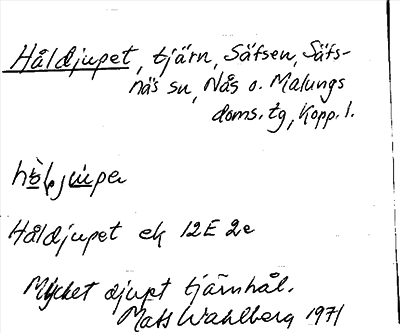 Håldjupet, tjärn, Säfsen, Säfs-
näs sn, Nås o. Malungs
doms. tg, Kopp. l.
Håldjupet ek 12E 2e
Mycket djupt tjärnhål.
Mats Wahlberg 1971